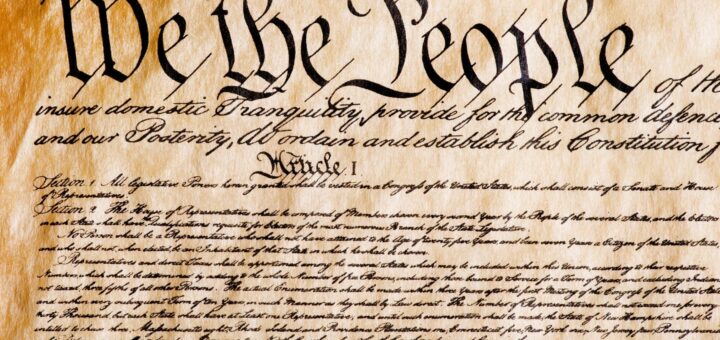 We the People of
insure domestic Tranquility, provide for the common defence
and our Posterity, do ordain and establish this Constitution f
Article I
Section 1. All legislative Powers herein granted shall be vested in a Congress of the United States, which shall consist of a Senate and House
of Representatives.
Section 2. The House of Representatives shall be composed of Members chosen every second Year by the People of the several States, and the Electors
in each State shall have the Qualifications requisite for Electors of the most numerous Branch of the State Legislature.
No Person shall be a Representative who shall not have attained to the Age of twenty five Years, and been seven Years a Citizen of the United States
and who shall not, when elected, be an Inhabitant of that State in which he shall be chosen.
Representatives and direct Taxes shall be apportioned among the several States which may be included within this Union, according to their respective
Numbers, which shall be determined by adding to the whole Number of free Persons, including those bound to Service for a Term of Years, and excluding Indians
not taxed, three fifths of all other Persons. The actual Enumeration shall be made within three Years after the first Meeting of the Congress of the United States
and within every subsequent Term of ten Years, in such Manner as they shall by Law direct. The Number of Representatives shall not exceed one for every
thirty Thousand, but each State shall have at Least one Representative; and until such enumeration shall be made, the State of New Hampshire shall be
entitled to chuse three, Massachusetts eight, Rhode Island and Providence Plantations one, Connecticut five, New York six, New Jersey four, Pennsylvania